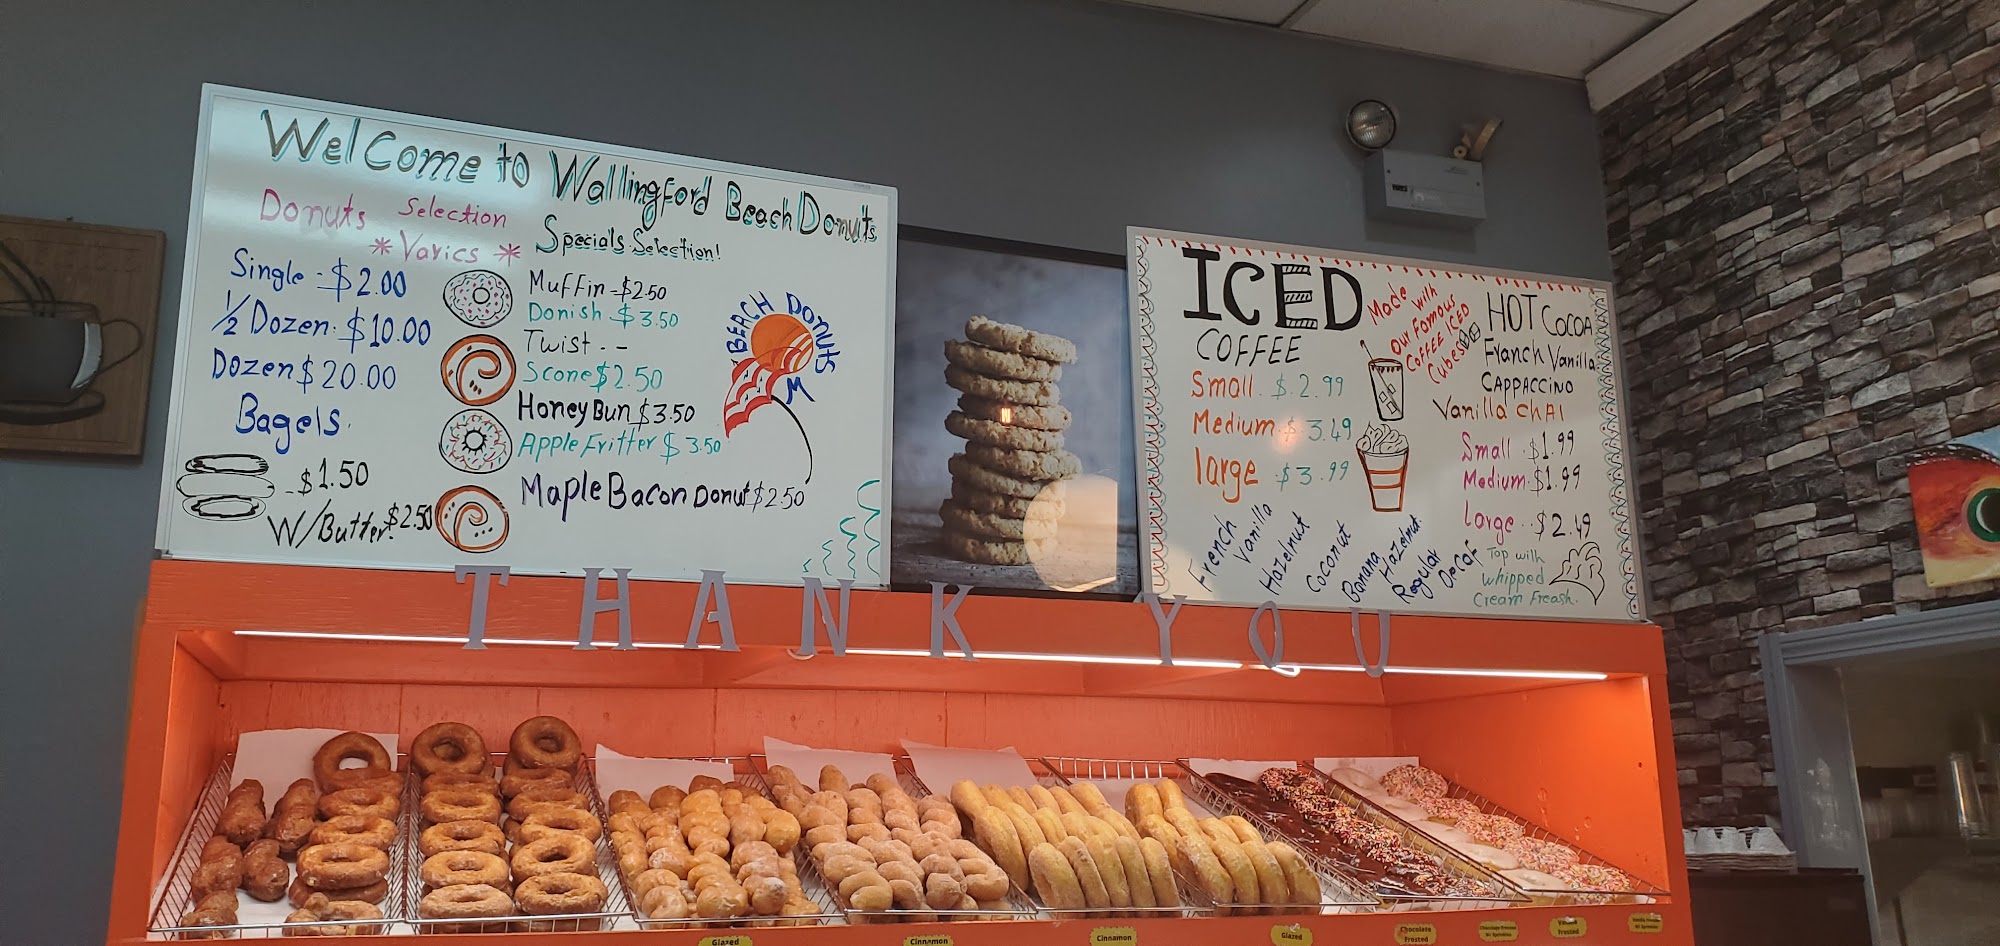 WelCome to Wallingford Beach Donuts
Donuts Selection
* Varics *
Single - $2.00
1/2 Dozen. $10.00
Dozen $20.00
Bagels.
- $1.50
W/Butter. $2.50
Specials Selection!
Muffin - $2.50
Donish $3.50
Twist - -
Scone $2.50
Honey Bun $3.50
Apple Fritter $3.50
Maple Bacon Donut $2.50
BEACH DONUTS
ICED
COFFEE
Small. $2.99
Medium $3.49
large $3.99
Made with
Our Famous
COFFEE ICED
Cubes
French Vanilla
Hazelnut
Coconut
Banana Hazelnut
Regular
Decaf
HOT COCOA
Franch Vanilla
CAPPACCINO
Vanilla CHAI
Small $1.99
Medium $1.99
Large .. $2.49
Top with
whipped
Cream Freash.
THANK YOU
Glazed
Cinnamon
Cinnamon
Glazed
Chocolate
Frosted
Frosted